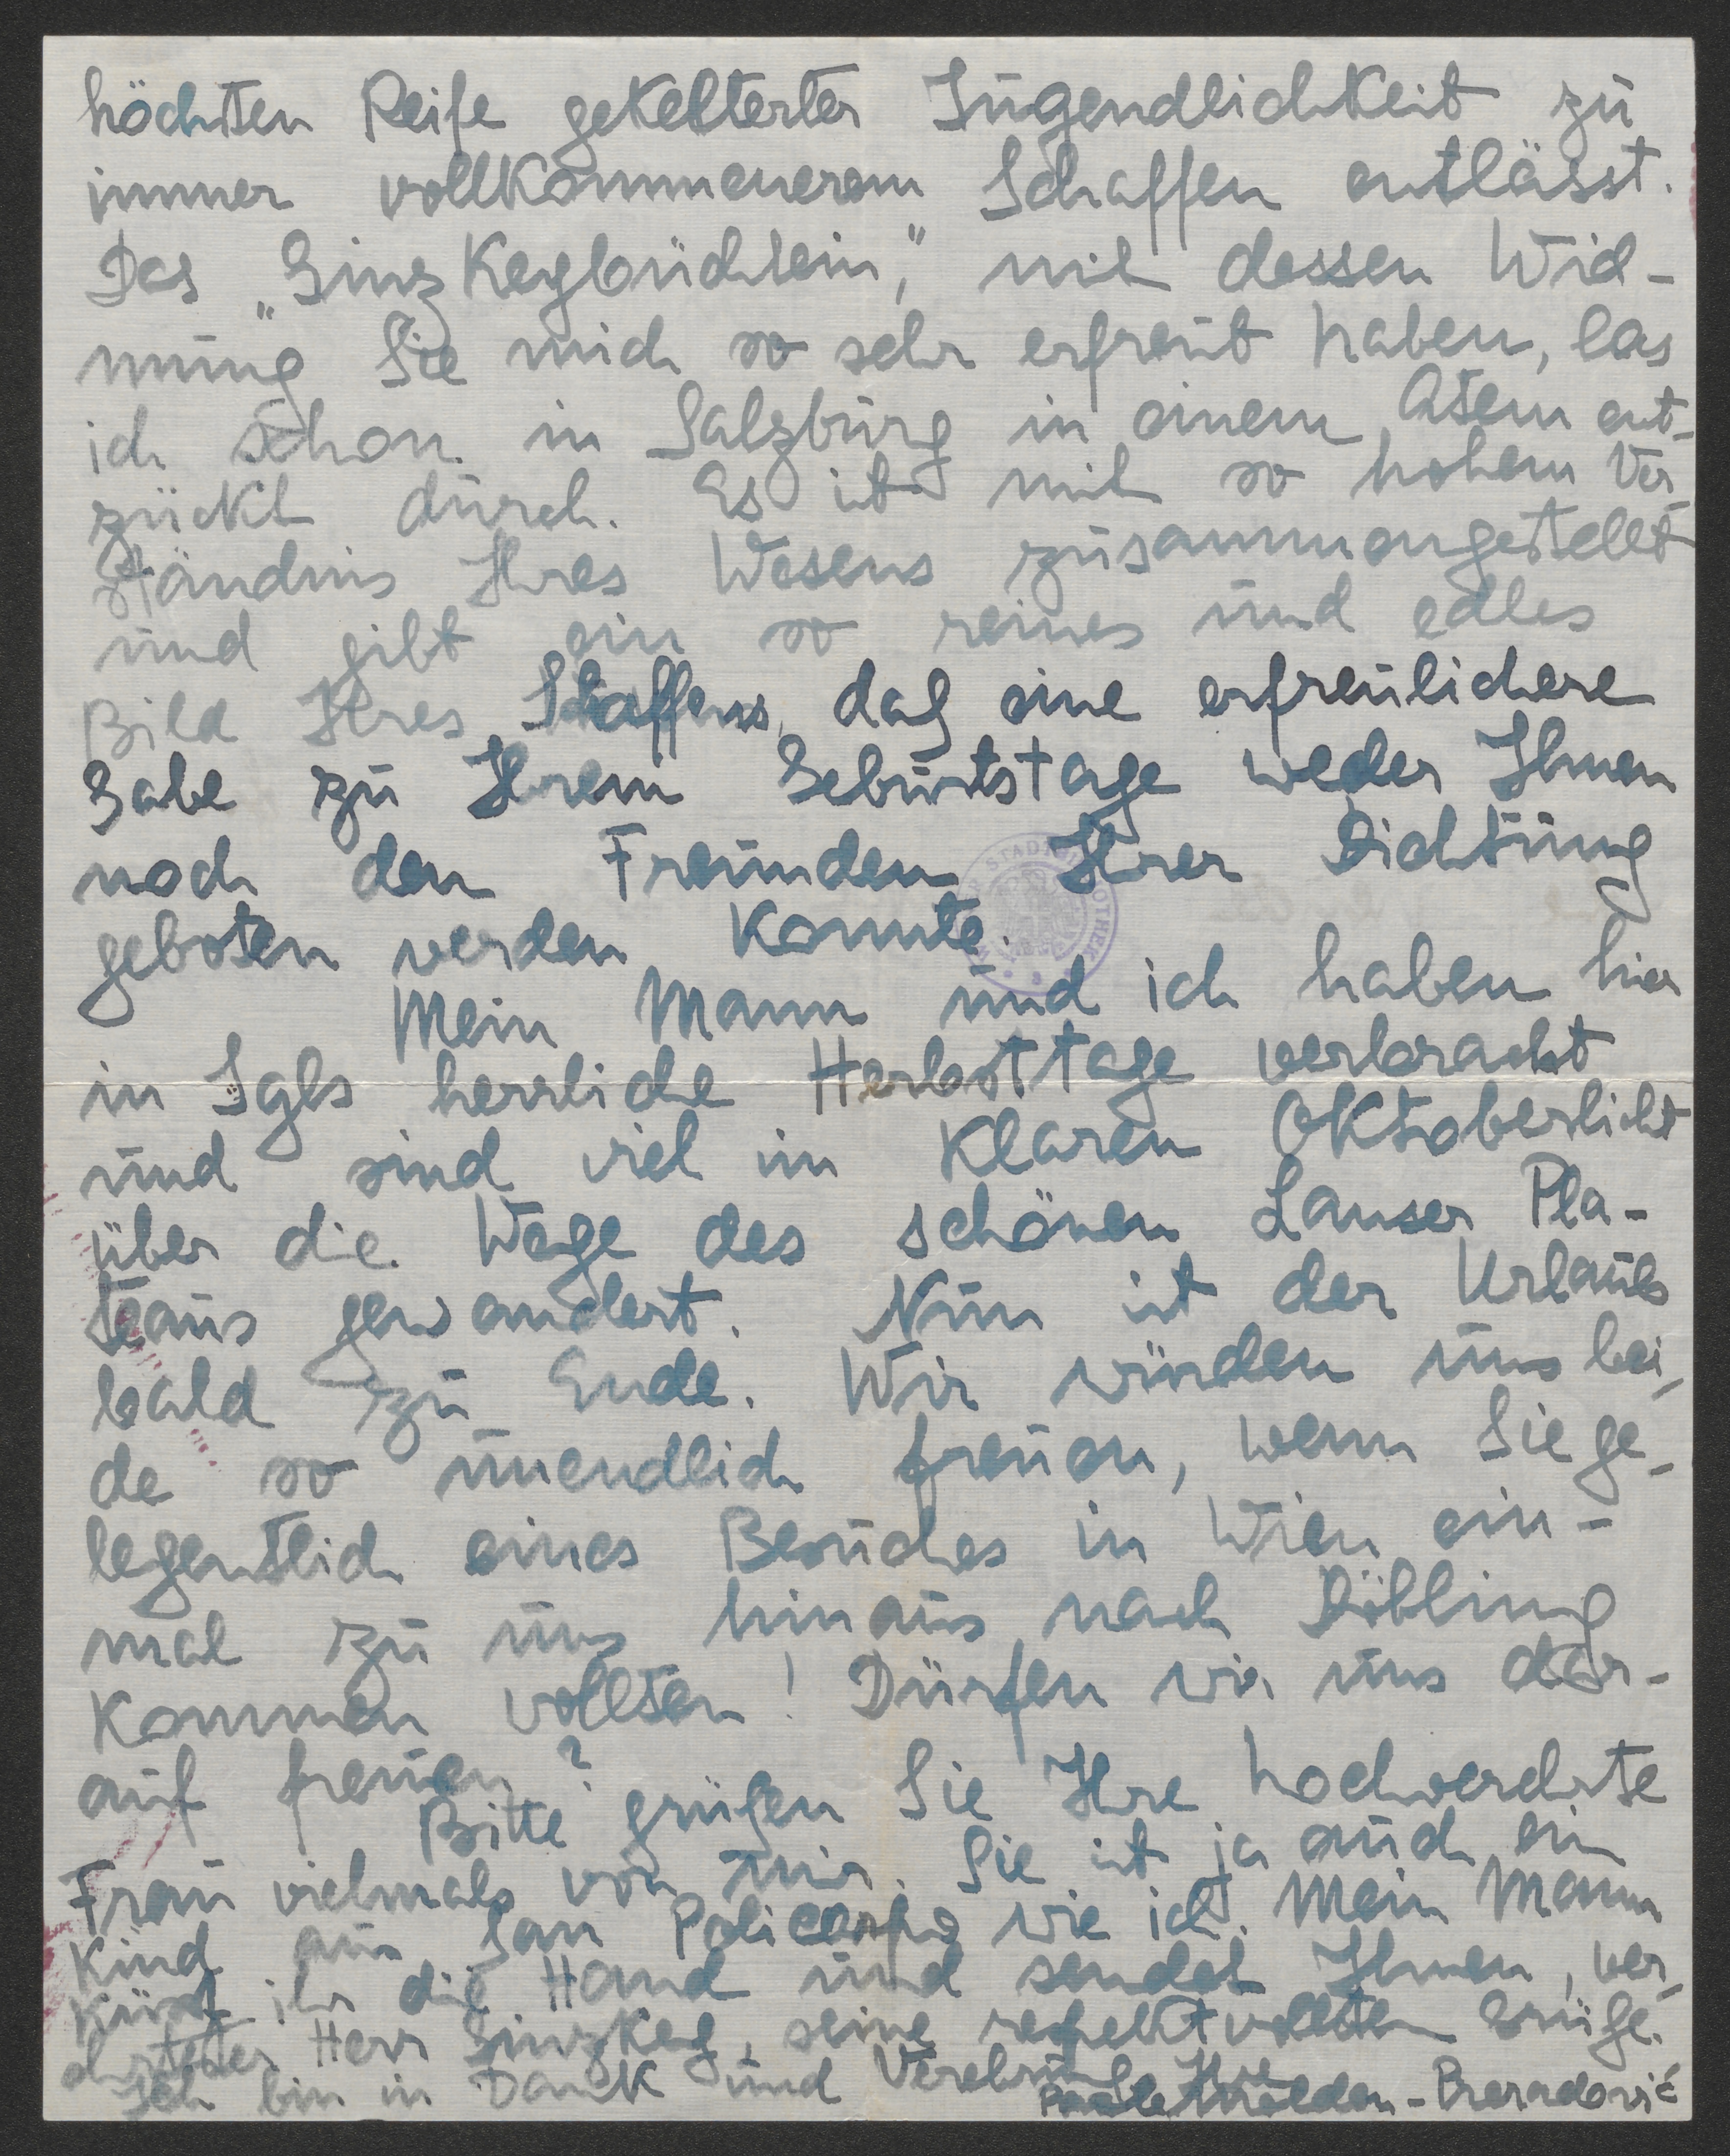 höchsten Reife gekelterter Jugendlichkeit zu
immer vollkommenerem Schaffen entlässt.
Das „Ginzkeybüchlein", mit dessen Wid-
mung Sie mich so sehr erfreut haben, las
ich schon in Salzburg in einem Atem ent-
zückt durch. Es ist mit so hohem Ver-
ständnis Ihres Wesens zusammengestellt
und gibt ein so reines und edles
Bild Ihres Schaffens, daß eine erfreulichere
Gabe zu Ihrem Geburtstage weder Ihnen
noch den Freunden Ihrer Dichtung
geboten werden konnte.
Mein Mann und ich haben hier
in Igls herrliche Herbsttage verbracht
und sind viel im klaren Oktoberlicht
über die Wege des schönen Lanser Pla-
teaus gewandert. Nun ist der Urlaub
bald zu Ende. Wir würden uns bei-
de so unendlich freuen, wenn Sie ge-
legentlich eines Besuches in Wien ein-
mal zu uns hinaus nach Döbling
kommen wollten! Dürfen wir uns dar-
auf freuen?
Bitte grüßen Sie Ihre hochverehrte
Frau vielmals von mir. Sie ist ja auch ein
Kind aus San Policarpo wie ich. Mein Mann
küsst ihr die Hand und sendet Ihnen, ver-
ehrtester Herr Ginzkey, seine respektvollsten Grüße.
Ich bin in Dank und Verehrung Ihre
Paula Molden-Preradović
STADTBIBLIOTHEK